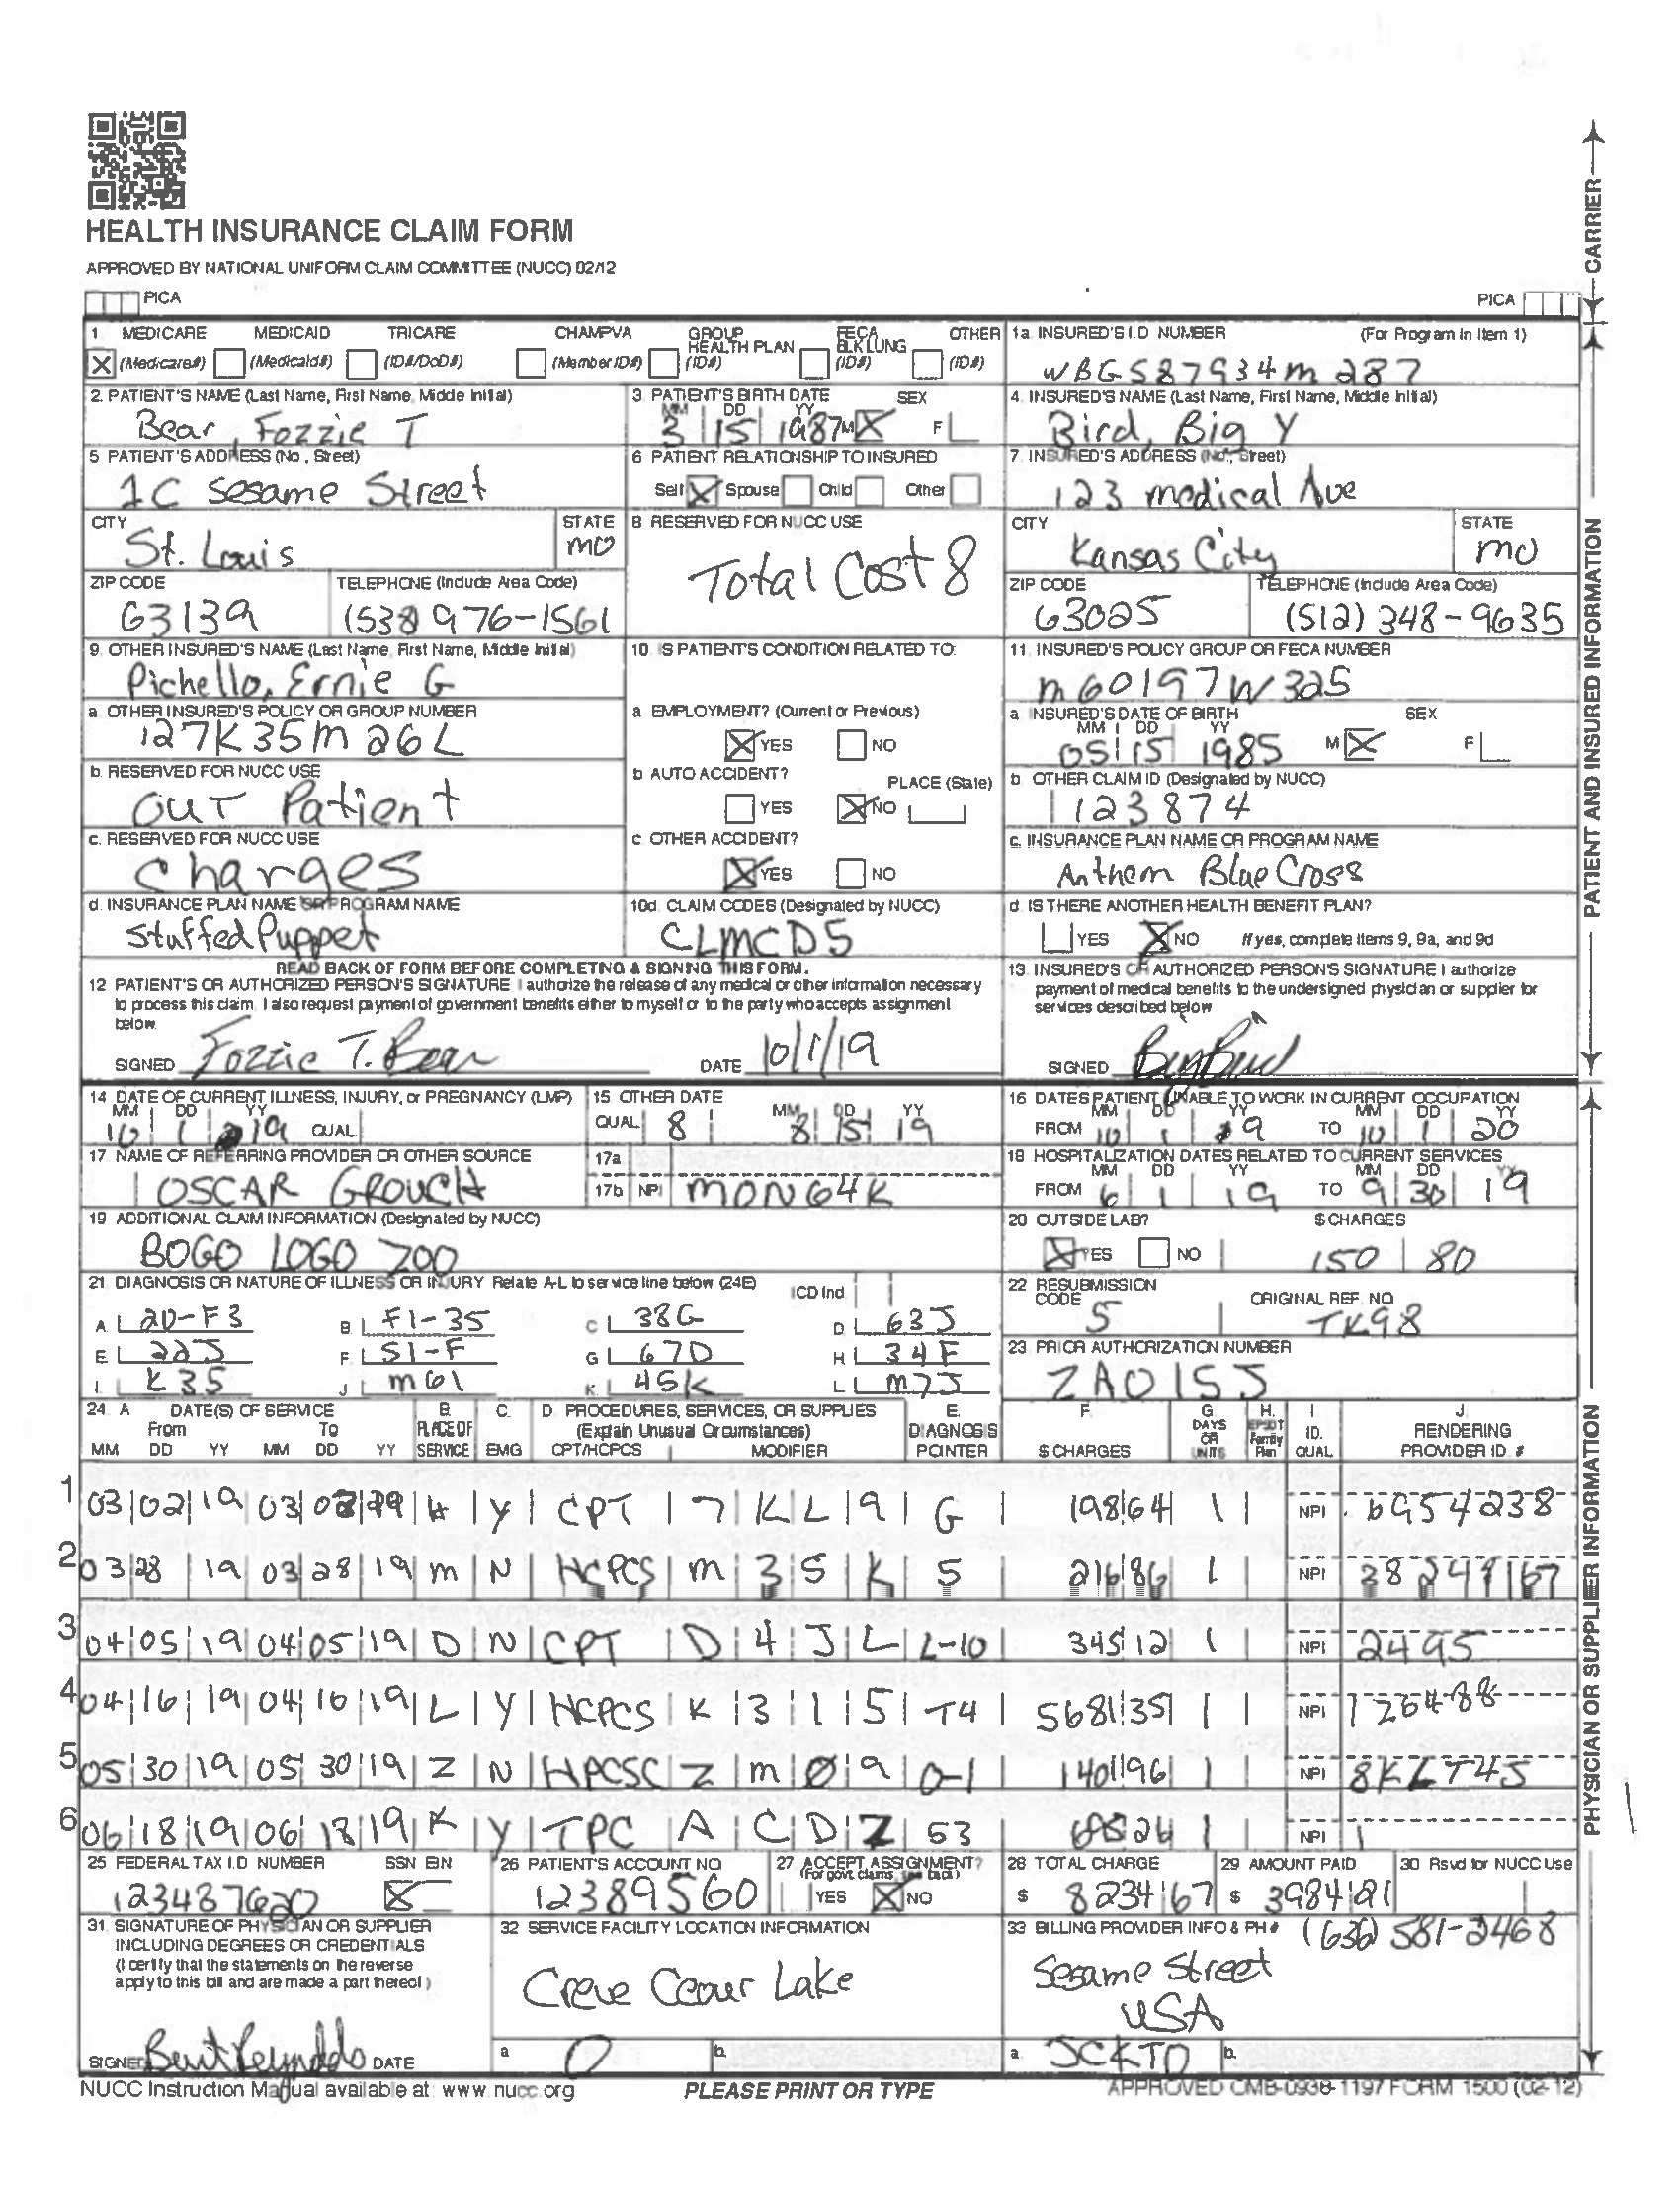 HEALTH INSURANCE CLAIM FORM
APPROVED BY NATIONAL UNIFORM CLAIM COMMITTEE (NUCC) 02/12
PICA PICA
CARRIER
1. MEDICARE MEDICAID TRICARE CHAMPVA GROUP HEALTH PLAN FECA BLK LUNG OTHER
X (Medicare#) (Medicaid#) (ID#/DoD#) (Member ID#) (ID#) (ID#) (ID#)
1a. INSURED'S I.D NUMBER (For Program in Item 1)
WBGS87934m287
2. PATIENT'S NAME (Last Name, First Name, Middle Initial)
Bear, Fozzie T
3. PATIENT'S BIRTH DATE SEX
MM DD YY
3 15 1987 M X F
4. INSURED'S NAME (Last Name, First Name, Middle Initial)
Bird, Big Y
5 PATIENT'S ADDRESS (No, Street)
1C Sesame Street
6 PATIENT RELATIONSHIP TO INSURED
Self X Spouse Child Other
7. INSURED'S ADDRESS (No., Street)
123 medical Ave
CITY STATE
St. Louis MO
8 RESERVED FOR NUCC USE
Total Cost 8
CITY STATE
Kansas City MO
ZIP CODE TELEPHONE (Include Area Code)
63139 (538) 976-1561
ZIP CODE TELEPHONE (Include Area Code)
63025 (512) 348-9635
9. OTHER INSURED'S NAME (Last Name, First Name, Middle Initial)
Pichello, Ernie G
10. IS PATIENT'S CONDITION RELATED TO:
11. INSURED'S POLICY GROUP OR FECA NUMBER
m60197W325
a. OTHER INSURED'S POLICY OR GROUP NUMBER
127K35M26L
a EMPLOYMENT? (Current or Previous)
X YES NO
a INSURED'S DATE OF BIRTH SEX
MM DD YY
05 15 1985 M X F
b. RESERVED FOR NUCC USE
OUT Patient
b AUTO ACCIDENT? PLACE (State)
YES X NO
b OTHER CLAIM ID (Designated by NUCC)
123874
c. RESERVED FOR NUCC USE
Charges
c OTHER ACCIDENT?
X YES NO
c. INSURANCE PLAN NAME OR PROGRAM NAME
Anthem Blue Cross
d. INSURANCE PLAN NAME OR PROGRAM NAME
Stuffed Puppet
10d. CLAIM CODES (Designated by NUCC)
CLMCD5
d IS THERE ANOTHER HEALTH BENEFIT PLAN?
YES X NO If yes, complete items 9, 9a, and 9d
READ BACK OF FORM BEFORE COMPLETING & SIGNING THIS FORM.
12 PATIENT'S OR AUTHORIZED PERSON'S SIGNATURE I authorize the release of any medical or other information necessary
to process this claim. I also request payment of government benefits either to myself or to the party who accepts assignment
below
SIGNED Fozzie T. Bear DATE 10/1/19
13. INSURED'S OR AUTHORIZED PERSON'S SIGNATURE I authorize
payment of medical benefits to the undersigned physician or supplier for
services described below
SIGNED
PATIENT AND INSURED INFORMATION
14 DATE OF CURRENT ILLNESS, INJURY, or PREGNANCY (LMP)
MM DD YY
10 1 19 QUAL
15 OTHER DATE
QUAL 8 MM DD YY
8 15 19
16 DATES PATIENT UNABLE TO WORK IN CURRENT OCCUPATION
MM DD YY MM DD YY
FROM 10 1 19 TO 10 1 20
17. NAME OF REFERRING PROVIDER OR OTHER SOURCE
OSCAR GROUCH
17a
17b NPI MON64K
18 HOSPITALIZATION DATES RELATED TO CURRENT SERVICES
MM DD YY MM DD YY
FROM 6 1 19 TO 9 30 19
19 ADDITIONAL CLAIM INFORMATION (Designated by NUCC)
BOGO LOGO 200
20 OUTSIDE LAB? $ CHARGES
X YES NO 150 80
21. DIAGNOSIS OR NATURE OF ILLNESS OR INJURY Relate A-L to service line below (24E) ICD Ind.
A. 20-F3 B. F1-35 C. 38G D. 63J
E. 22J F. S1-F G. 67D H. 34F
I. K35 J. M61 K. 45K L. M7J
22 RESUBMISSION CODE ORIGINAL REF. NO
5 TK98
23 PRIOR AUTHORIZATION NUMBER
ZA015J
24. A DATE(S) OF SERVICE B. C. D. PROCEDURES, SERVICES, OR SUPPLIES E. F. G. H. I J.
From To PLACE OF (Explain Unusual Circumstances) DIAGNOSIS DAYS OR EPSDT Family ID. RENDERING
MM DD YY MM DD YY SERVICE EMG CPT/HCPCS MODIFIER POINTER $ CHARGES UNITS Plan QUAL PROVIDER ID. #
1 03 02 19 03 Y CPT 7 K L 9 G 198 64 1 NPI 6954238
2 03 28 19 03 28 19 m N HCPCS m 3 5 K 5 216 86 1 NPI
3 04 05 19 04 05 19 D N CPT D 4 J L L-10 345 12 1 NPI 2495
4 04 16 19 04 16 19 L Y HCPCS K 3 1 5 T4 5681 35 1 NPI 126488
5 05 30 19 05 30 19 Z N HPCSC Z m Ø 9 0-1 1401 96 1 NPI 8KLT45
6 06 18 19 06 18 19 K Y TPC A C D Z 53 26 1 NPI 1
25 FEDERAL TAX I.D NUMBER SSN EIN
X
26 PATIENT'S ACCOUNT NO
12389560
27 ACCEPT ASSIGNMENT?
(For govt. claims, see back)
YES X NO
28 TOTAL CHARGE
$ 8234 67
29 AMOUNT PAID
$ 3984 21
30 Rsvd for NUCC Use
31. SIGNATURE OF PHYSICIAN OR SUPPLIER
INCLUDING DEGREES OR CREDENTIALS
(I certify that the statements on the reverse
apply to this bill and are made a part thereof)
SIGNED Burt Reynolds DATE
32 SERVICE FACILITY LOCATION INFORMATION
Creve Ceour Lake
a 0 b.
33 BILLING PROVIDER INFO & PH # (636) 581-2468
Sesame Street
USA
a. JCKTD b.
PHYSICIAN OR SUPPLIER INFORMATION
NUCC Instruction Manual available at: www.nucc.org PLEASE PRINT OR TYPE APPROVED OMB-0938-1197 FORM 1500 (02-12)